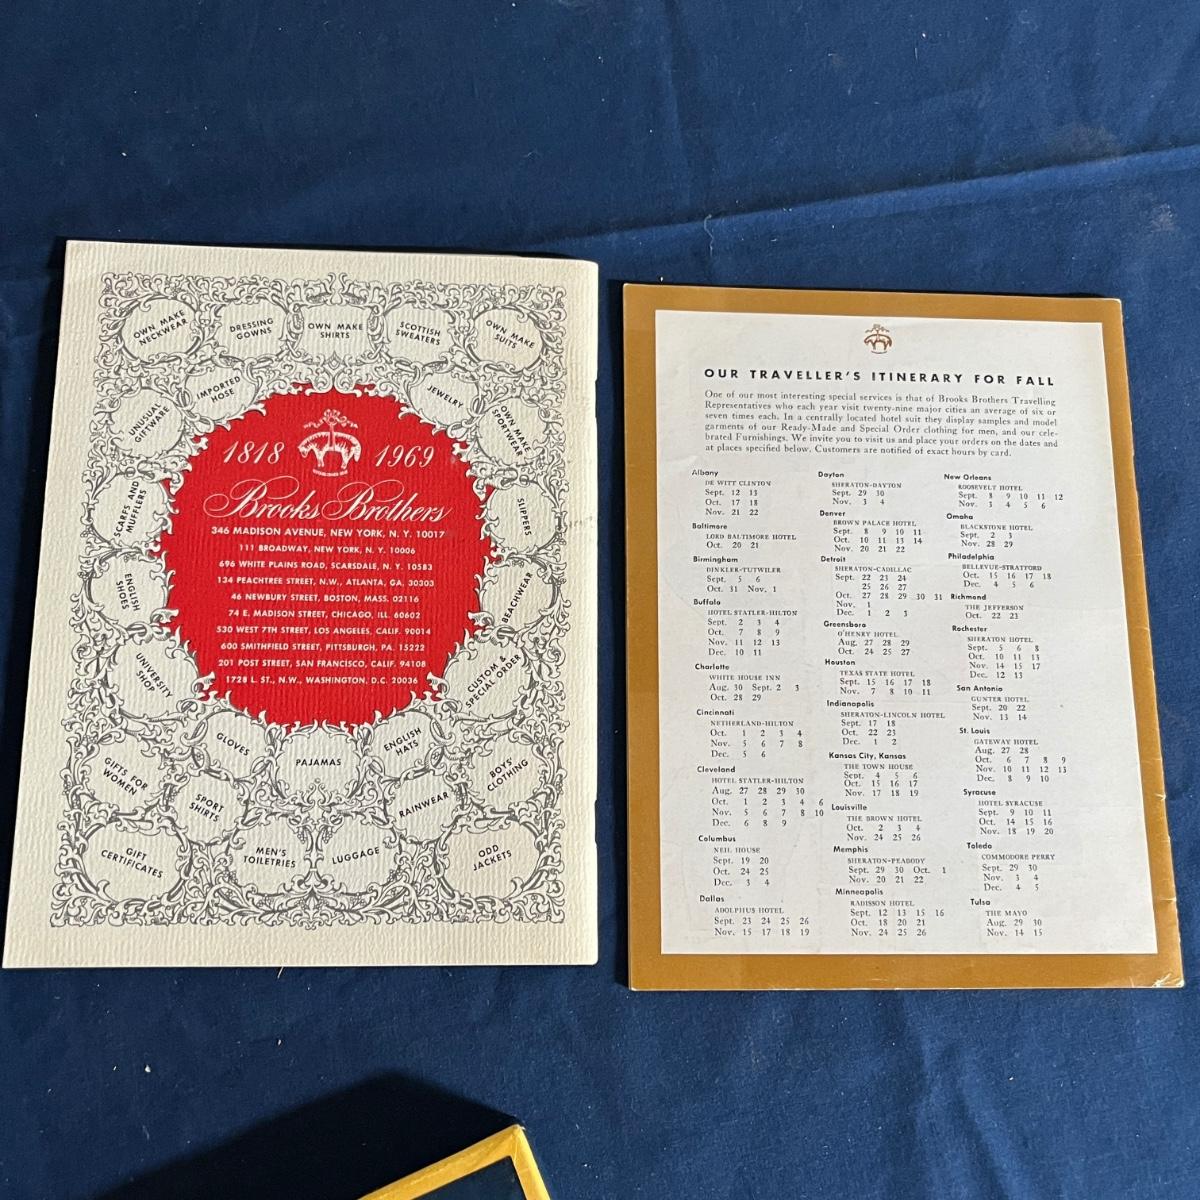 OWN MAKE
NECKWEAR
DRESSING
GOWNS
OWN MAKE
SHIRTS
SCOTTISH
SWEATERS
OWN MAKE
SUITS
UNUSUAL
GIFTWRE
IMPORTED
HOSE
JEWELRY
OWN MAKE
SPORTWEAR
1818 1969
Brooks Brothers
346 MADISON AVENUE, NEW YORK, N. Y. 10017
111 BROADWAY, NEW YORK, N. Y. 10006
696 WHITE PLAINS ROAD, SCARSDALE, N. Y. 10583
134 PEACHTREE STREET, N.W., ATLANTA, GA. 30303
46 NEWBURY STREET, BOSTON, MASS. 02116
74 E. MADISON STREET, CHICAGO, ILL. 60602
530 WEST 7TH STREET, LOS ANGELES, CALIF. 90014
600 SMITHFIELD STREET, PITTSBURGH, PA. 15222
201 POST STREET, SAN FRANCISCO, CALIF. 94108
1728 L. ST., N.W., WASHINGTON, D.C. 20036
SCARFS AND
MUFFLERS
SLIPPERS
ENGLISH
SHOES
BEACHWEAR
UNIVERSITY
SHOP
CUSTOM &
SPECIAL ORDER
GLOVES
PAJAMAS
ENGLISH
HATS
GIFTS FOR
WOMEN
SPORT
SHIRTS
RAINWEAR
BOYS'
CLOTHING
GIFT
CERTIFICATES
MEN'S
TOILETRIES
LUGGAGE
ODD
JACKETS
OUR TRAVELLER'S ITINERARY FOR FALL
One of our most interesting special services is that of Brooks Brothers Travelling
Representatives who each year visit twenty-nine major cities an average of six or
seven times each. In a centrally located hotel suit they display samples and model
garments of our Ready-Made and Special Order clothing for men, and our cele-
brated Furnishings. We invite you to visit us and place your orders on the dates and
at places specified below. Customers are notified of exact hours by card.
Albany
DE WITT CLINTON
Sept. 12 13
Oct. 17 18
Nov. 21 22
Baltimore
LORD BALTIMORE HOTEL
Oct. 20 21
Birmingham
DINKLER-TUTWILER
Sept. 5 6
Oct. 31 Nov. 1
Buffalo
HOTEL STATLER-HILTON
Sept. 2 3 4
Oct. 7 8 9
Nov. 11 12 13
Dec. 10 11
Charlotte
WHITE HOUSE INN
Aug. 30 Sept. 2 3
Oct. 28 29
Cincinnati
NETHERLAND-HILTON
Oct. 1 2 3 4
Nov. 5 6 7 8
Dec. 5 6
Cleveland
HOTEL STATLER-HILTON
Aug. 27 28 29 30
Oct. 1 2 3 4 6
Nov. 5 6 7 8 10
Dec. 6 8 9
Columbus
NEIL HOUSE
Sept. 19 20
Oct. 24 25
Dec. 3 4
Dallas
ADOLPHUS HOTEL
Sept. 23 24 25 26
Nov. 15 17 18 19
Dayton
SHERATON-DAYTON
Sept. 29 30
Nov. 3 4
Denver
BROWN PALACE HOTEL
Sept. 8 9 10 11
Oct. 10 11 13 14
Nov. 20 21 22
Detroit
SHERATON-CADILLAC
Sept. 22 23 24
25 26 27
Oct. 27 28 29 30 31
Nov. 1
Dec. 1 2 3
Greensboro
O'HENRY HOTEL
Aug. 27 28 29
Oct. 24 25 27
Houston
TEXAS STATE HOTEL
Sept. 15 16 17 18
Nov. 7 8 10 11
Indianapolis
SHERATON-LINCOLN HOTEL
Sept. 17 18
Oct. 22 23
Dec. 1 2
Kansas City, Kansas
THE TOWN HOUSE
Sept. 4 5 6
Oct. 15 16 17
Nov. 17 18 19
Louisville
THE BROWN HOTEL
Oct. 2 3 4
Nov. 24 25 26
Memphis
SHERATON-PEABODY
Sept. 29 30 Oct. 1
Nov. 20 21 22
Minneapolis
RADISSON HOTEL
Sept. 12 13 15 16
Oct. 18 20 21
Nov. 24 25 26
New Orleans
ROOSEVELT HOTEL
Sept. 8 9 10 11 12
Nov. 3 4 5 6
Omaha
BLACKSTONE HOTEL
Sept. 2 3
Nov. 28 29
Philadelphia
BELLEVUE-STRATFORD
Oct. 15 16 17 18
Dec. 4 5 6
Richmond
THE JEFFERSON
Oct. 22 23
Rochester
SHERATON HOTEL
Sept. 5 6 8
Oct. 10 11 13
Nov. 14 15 17
Dec. 12 13
San Antonio
GUNTER HOTEL
Sept. 20 22
Nov. 13 14
St. Louis
GATEWAY HOTEL
Aug. 27 28
Oct. 6 7 8 9
Nov. 10 11 12 13
Dec. 8 9 10
Syracuse
HOTEL SYRACUSE
Sept. 9 10 11
Oct. 14 15 16
Nov. 18 19 20
Toledo
COMMODORE PERRY
Sept. 29 30
Nov. 3 4
Dec. 4 5
Tulsa
THE MAYO
Aug. 29 30
Nov. 14 15